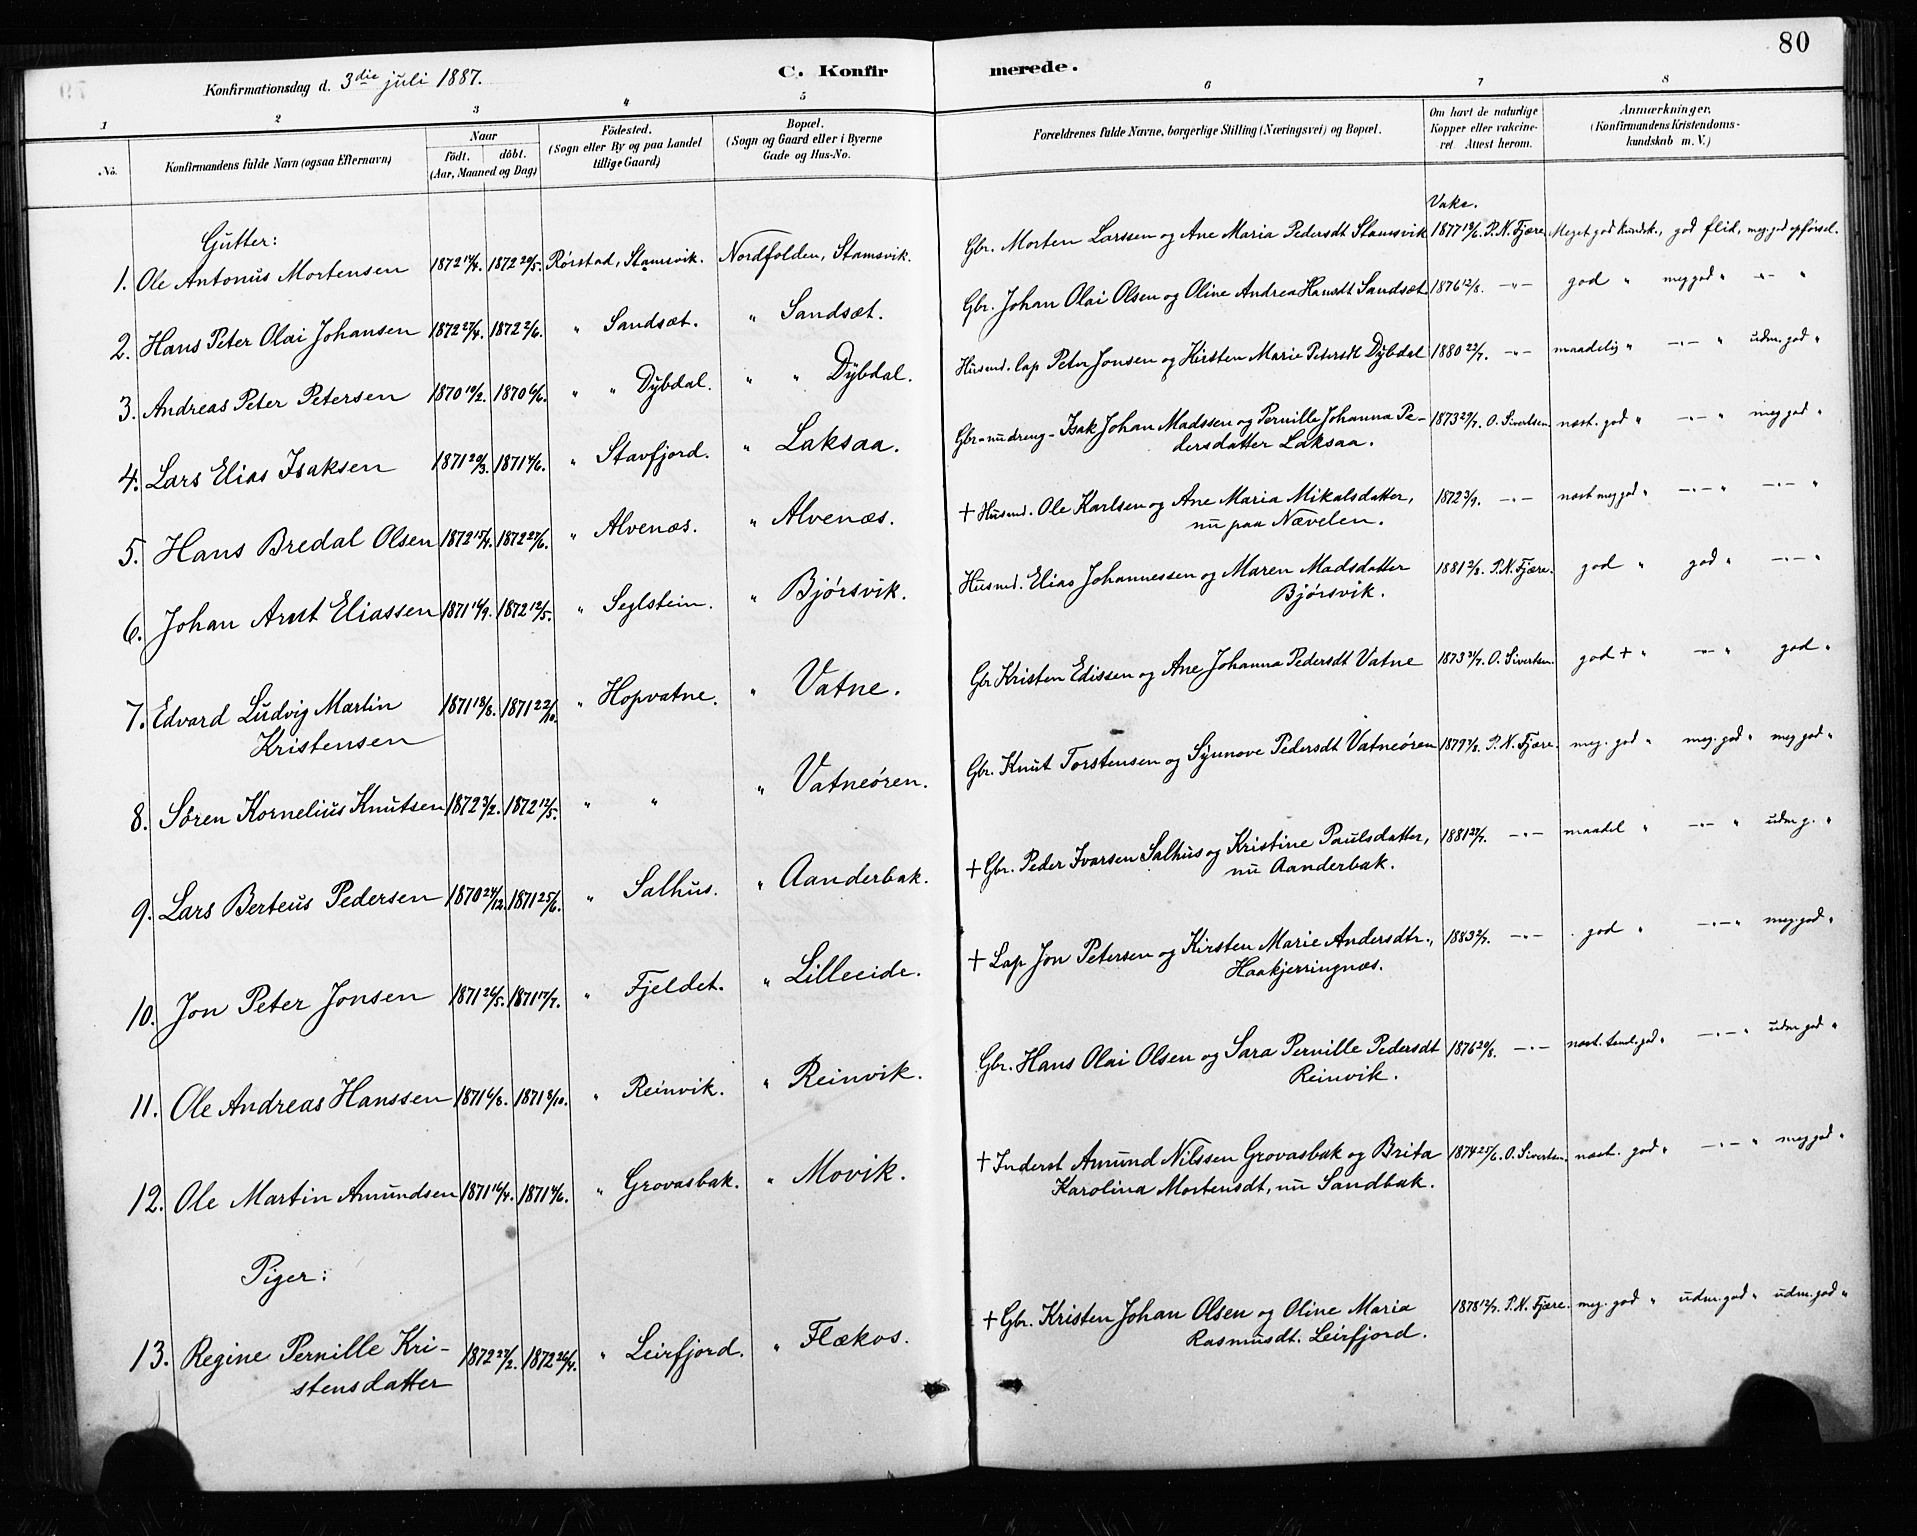 80
Konfirmationsdag d. 3die juli 1887.
C. Konfirmerede.
1 2 3 4 5 6 7 8
No. Konfirmandens fulde Navn (ogsaa Efternavn)
Naar født. døbt. (Aar, Maaned og Dag)
Fødested. (Sogn eller By og paa Landet tillige Gaard)
Bopæl. (Sogn og Gaard eller i Byerne Gade og Hus-No.
Forældrenes fulde Navne, borgerlige Stilling (Næringsvei) og Bopæl.
Om havt de naturlige Kopper eller vakcineret. Attest herom.
Anmærkninger. (Konfirmandens Kristendomskundskab m. V.)
Gutter:
Vakc.
1. Ole Antonius Mortensen 1872 14/4. 1872 20/5. Rørstad, Stamsvik. Nordfolden, Stamsvik. Gbr. Morten Larssen og Ane Maria Pedersdt Stamsvik 1877 19/6. P. N. Fjære Meget god kundsk., god flid, meg. god opførsel.
2. Hans Peter Olai Johansen 1872 27/4. 1872 2/6. " Sandsæt. " Sandsæt. Gbr. Johan Olai Olsen og Oline Andrea Hansdt Sandsæt 1876 12/8. -"- god " meg god " -"- "
3. Andreas Peter Petersen 1870 19/2. 1870 6/6. " " Dybdal. " " Dybdal. Husmd. lap Peter Jonsen og Kirsten Marie Petersdt Dybdal 1880 22/7. -"- maadelig " -"- " udm. god "
4. Lars Elias Isaksen 1871 20/3. 1871 4/6. " Stavfjord. " Laksaa. Gbr-nudreng- Isak Johan Madssen og Pernille Johanna Pe-
dersdatter Laksaa. 1873 29/7. O. Sivertsen næst. god " -"- " meg god "
5. Hans Bredal Olsen 1872 15/4. 1872 27/6. " Alvenæs. " Alvenæs. + Husmd. Ole Karlsen og Ane Maria Mikalsdatter,
nu paa Nævelen. 1872 3/9. -"- næst meg god " -"- " -"- "
6. Johan Arnt Eliassen 1871 16/9. 1872 12/5. " Seglstein. " Bjørsvik. Husmd. Elias Johannessen og Maren Madsdatter
Bjørsvik. 1881 2/8. P. N. Fjære. god " god " -"- "
7. Edvard Ludvig Martin
Kristensen 1871 18/8. 1871 22/10. " Hopvatne. " Vatne. Gbr Kristen Edissen og Ane Johanna Pedersdt Vatne 1873 31/7. O. Sivertsen. god + " -"- " god "
8. Søren Kornelius Knutsen 1872 3/2. 1872 12/5. " " " Vatneøren. Gbr. Knut Torstensen og Synnove Pedersdt Vatneøren 1879 7/8. P. N. Fjære. meg. god " meg. god " meg god "
9. Lars Berteus Pedersen 1870 24/12. 1871 25/6. " Salhus. " Aanderbak. + Gbr. Peder Ivarsen Salhus og Kristine Paulsdatter,
nu Aanderbak. 1881 27/7. -"- maadel " -"- " udm g. "
10. Jon Peter Jonsen 1871 26/5. 1871 17/7. " Fjeldet. " Lilleeide. + Lap Jon Petersen og Kirsten Marie Andersdtr.,
Haakjerringnæs. 1883 2/7. -"- god " -"- " meg. god "
11. Ole Andreas Hanssen 1871 6/8. 1871 8/10. " Reinvik. " Reinvik. Gbr. Hans Olai Olsen og Sara Pernille Pedersdt
Reinvik. 1876 20/8. -"- næst. teml. god " -"- " udm god "
12. Ole Martin Amundsen 1871 16/4. 1871 4/6. " Grovasbak. " Movik. + Inderst Amund Nilssen Grovasbak og Brita
Karolina Mortensdt, nu Sandbak. 1874 25/6. O. Sivertsen. næst. god " -"- " meg god "
Piger:
13. Regine Pernille Kri-
stensdatter 1872 22/2. 1872 26/4. " Leirfjord. " Flækos. + Gbr. Kristen Johan Olsen og Oline Maria
Rasmusdt. Leirfjord. 1878 12/7. P. N. Fjære. meg. god " udm. god " udm. god "